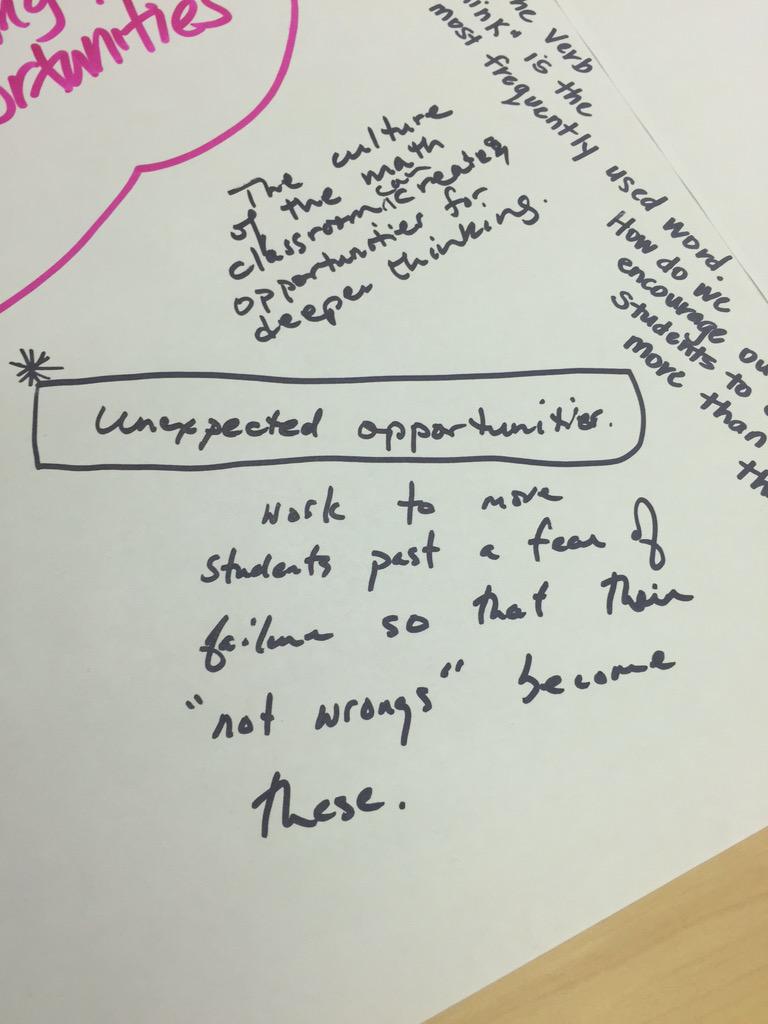 opportunities
The culture
of the math
classroom can creating
opportunities for
deeper thinking.
the verb
"think" is the
most frequently used word.
How do we
encourage our
students to
more than
Unexpected opportunities.
work to move
students past a fear of
failure so that their
"not wrongs" become
these.